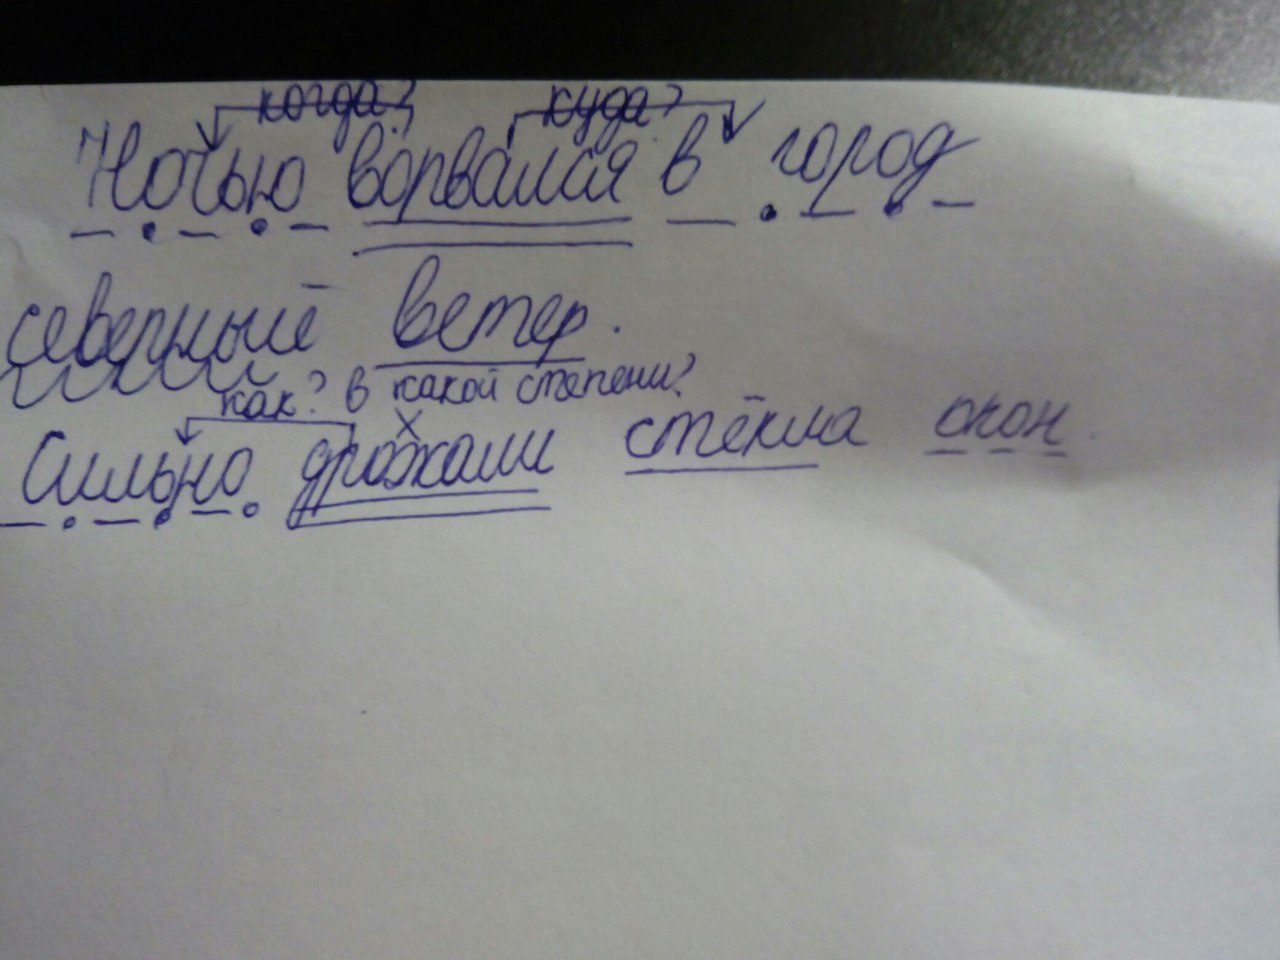 когда? куда?
Ночью ворвался в город
северный ветер.
как? в какой степени?
х
Сильно дрожали стёкла окон.